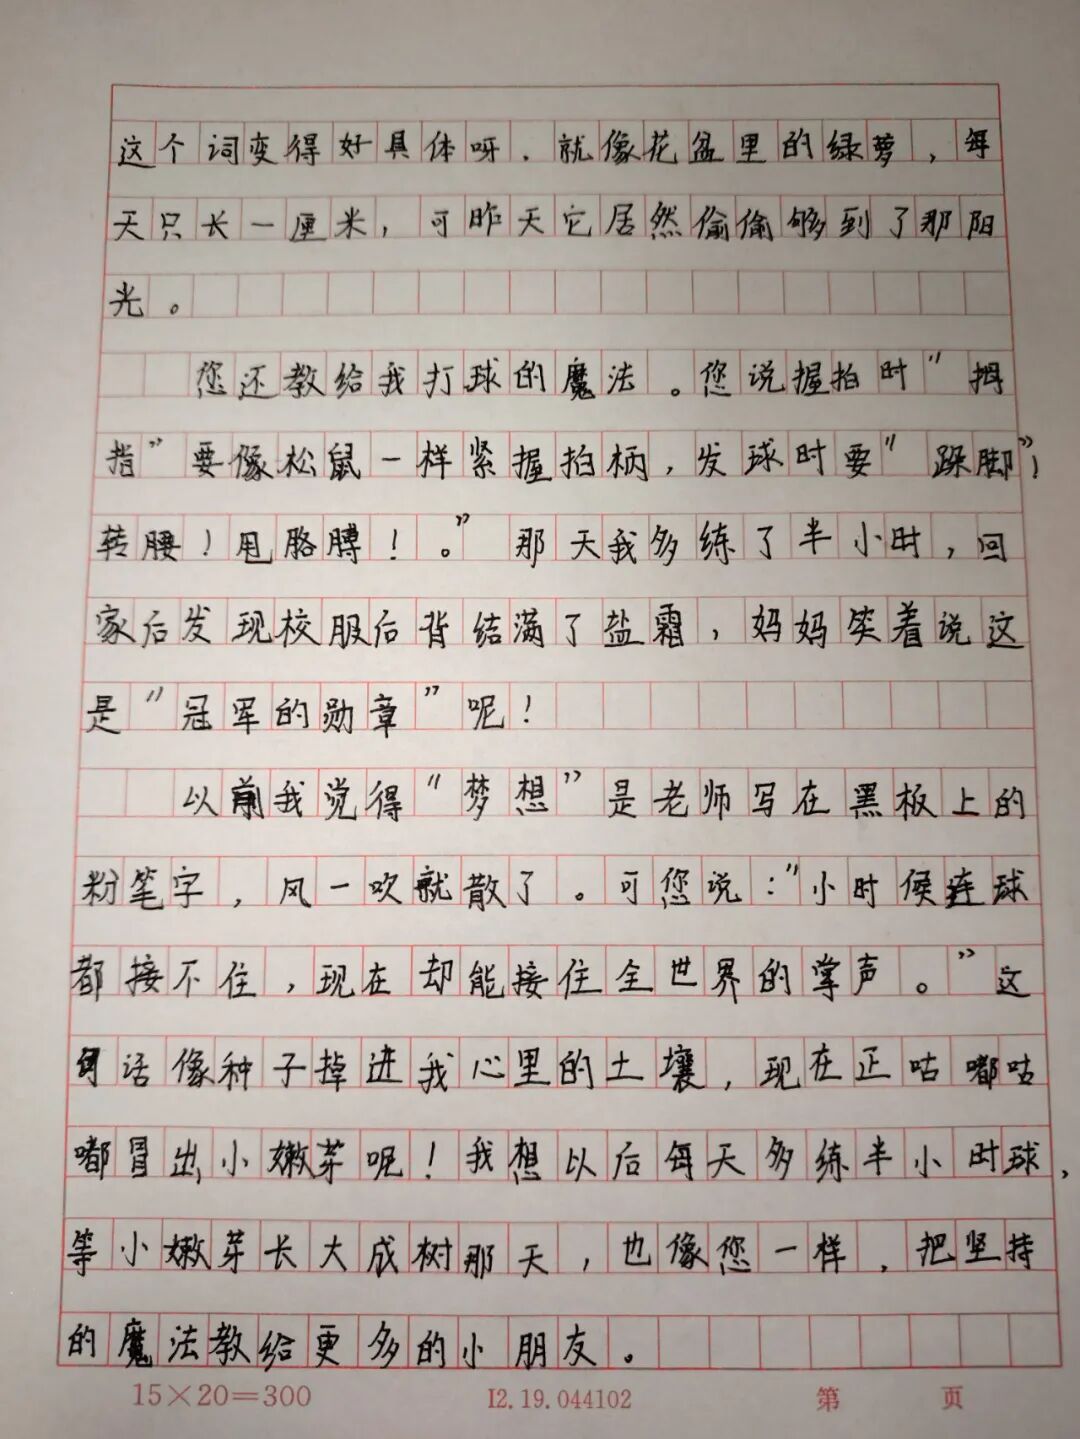 这个词变得好具体呀．就像花盆里的绿萝，每
天只长一厘米，可昨天它居然偷偷够到了那阳
光。
您还教给我打球的魔法。您说握拍时“拇
指”要像松鼠一样紧握拍柄，发球时要“跺脚”！
转腰！甩胳膊！。”那天我多练了半小时，回
家后发现校服后背结满了盐霜，妈妈笑着说这
是“冠军的勋章”呢！
以前我觉得“梦想”是老师写在黑板上的
粉笔字，风一吹就散了。可您说：“小时候连球
都接不住，现在却能接住全世界的掌声。”这
句话像种子掉进我心里的土壤，现在正咕嘟咕
嘟冒出小嫩芽呢！我想以后每天多练半小时球，
等小嫩芽长大成树那天，也像您一样，把坚持
的魔法教给更多的小朋友。
15×20=300 I2.19.044102 第 页